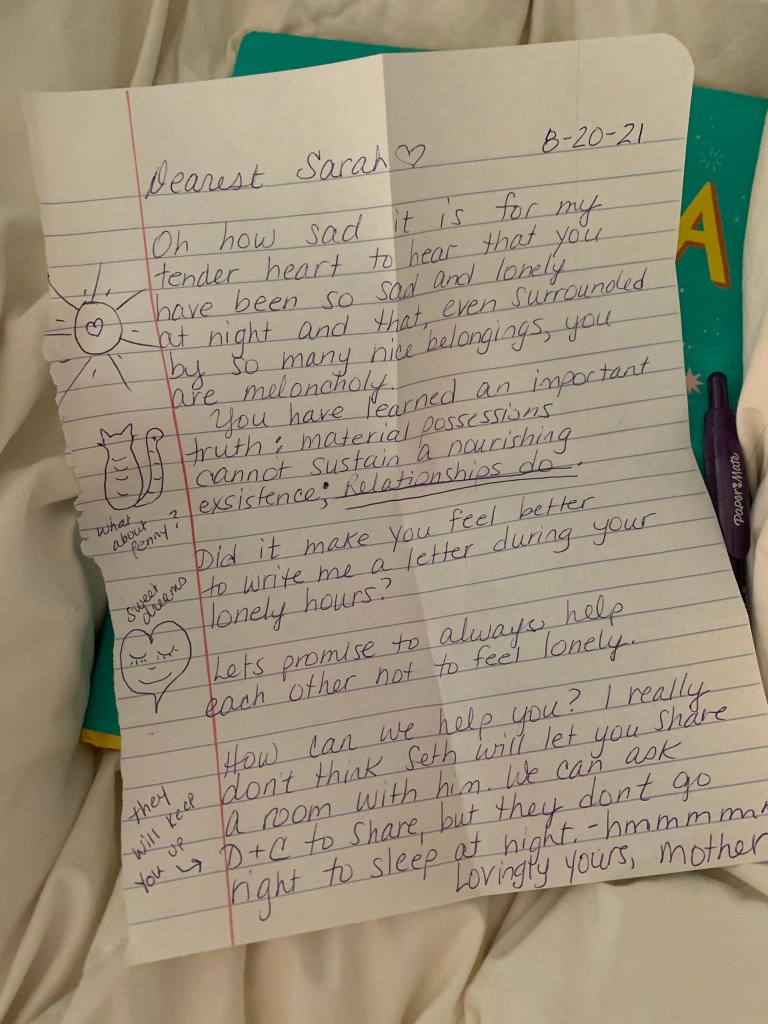 8-20-21
Dearest Sarah
Oh how sad it is for my
tender heart to hear that you
have been so sad and lonely
at night and that, even surrounded
by so many nice belongings, you
are meloncholy.
You have learned an important
truth: material possessions
cannot sustain a nourishing
exsistence; Relationships do.
what
about
Penny?
Did it make you feel better
to write me a letter during your
lonely hours?
sweet
dreams
Lets promise to always help
each other not to feel lonely.
How can we help you? I really
don't think Seth will let you share
a room with him. We can ask
D+C to share, but they dont go
right to sleep at night. - hmmmmm
they
will keep
you up
Lovingly yours, mother
A
Paper Mate